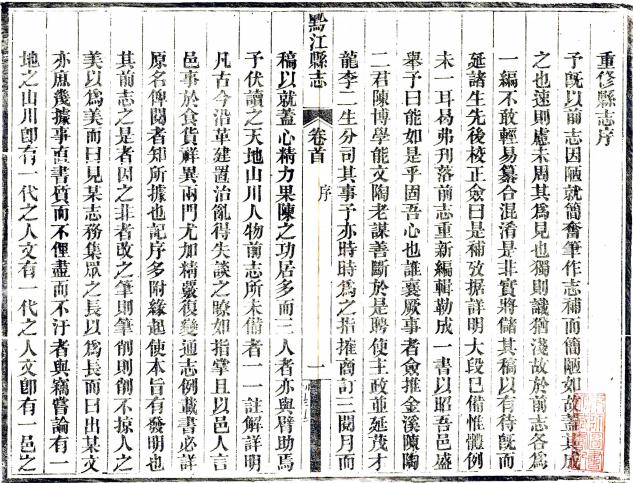 重修縣志序
予旣以前志因陋就簡奮筆作志補而簡陋如故蓋其成
之也速則慮未周其爲見也獨則識猶淺故於前志各爲
一編不敢輕易纂合混淆是非實將儲其稿以有待旣而
延諸生先後校正僉曰是補攷據詳明大段已備惟體例
未一耳曷弗刋落前志重新編輯勒成一書以昭吾邑盛
舉予曰能如是乎固吾心也誰襄厥事者僉推金溪陳陶
二君陳博學能文陶老謀善斷於是聘使主政並延茂才
龍李二生分司其事予亦時時爲之指摧商訂三閱月而
黔江縣志
卷首
序
一
稿以就蓋心精力果陳之功居多而三人者亦與臂助焉
予伏讀之天地山川人物前志所未備者一一註解詳明
凡古今沿革建置治亂得失談之瞭如指掌且以邑人言
邑事於食貨祥異兩門尤加精嚴復變通志例載書必詳
原名俾閱者知所據也記序多附緣起使本旨有發明也
其前志之是者因之非者改之筆則筆削則削不掠人之
美以爲美而曰見某志務集眾之長以爲長而曰出某文
亦庶幾據事直書質而不俚盡而不汙者與竊嘗論有一
地之山川卽有一代之人文有一代之人文卽有一邑之